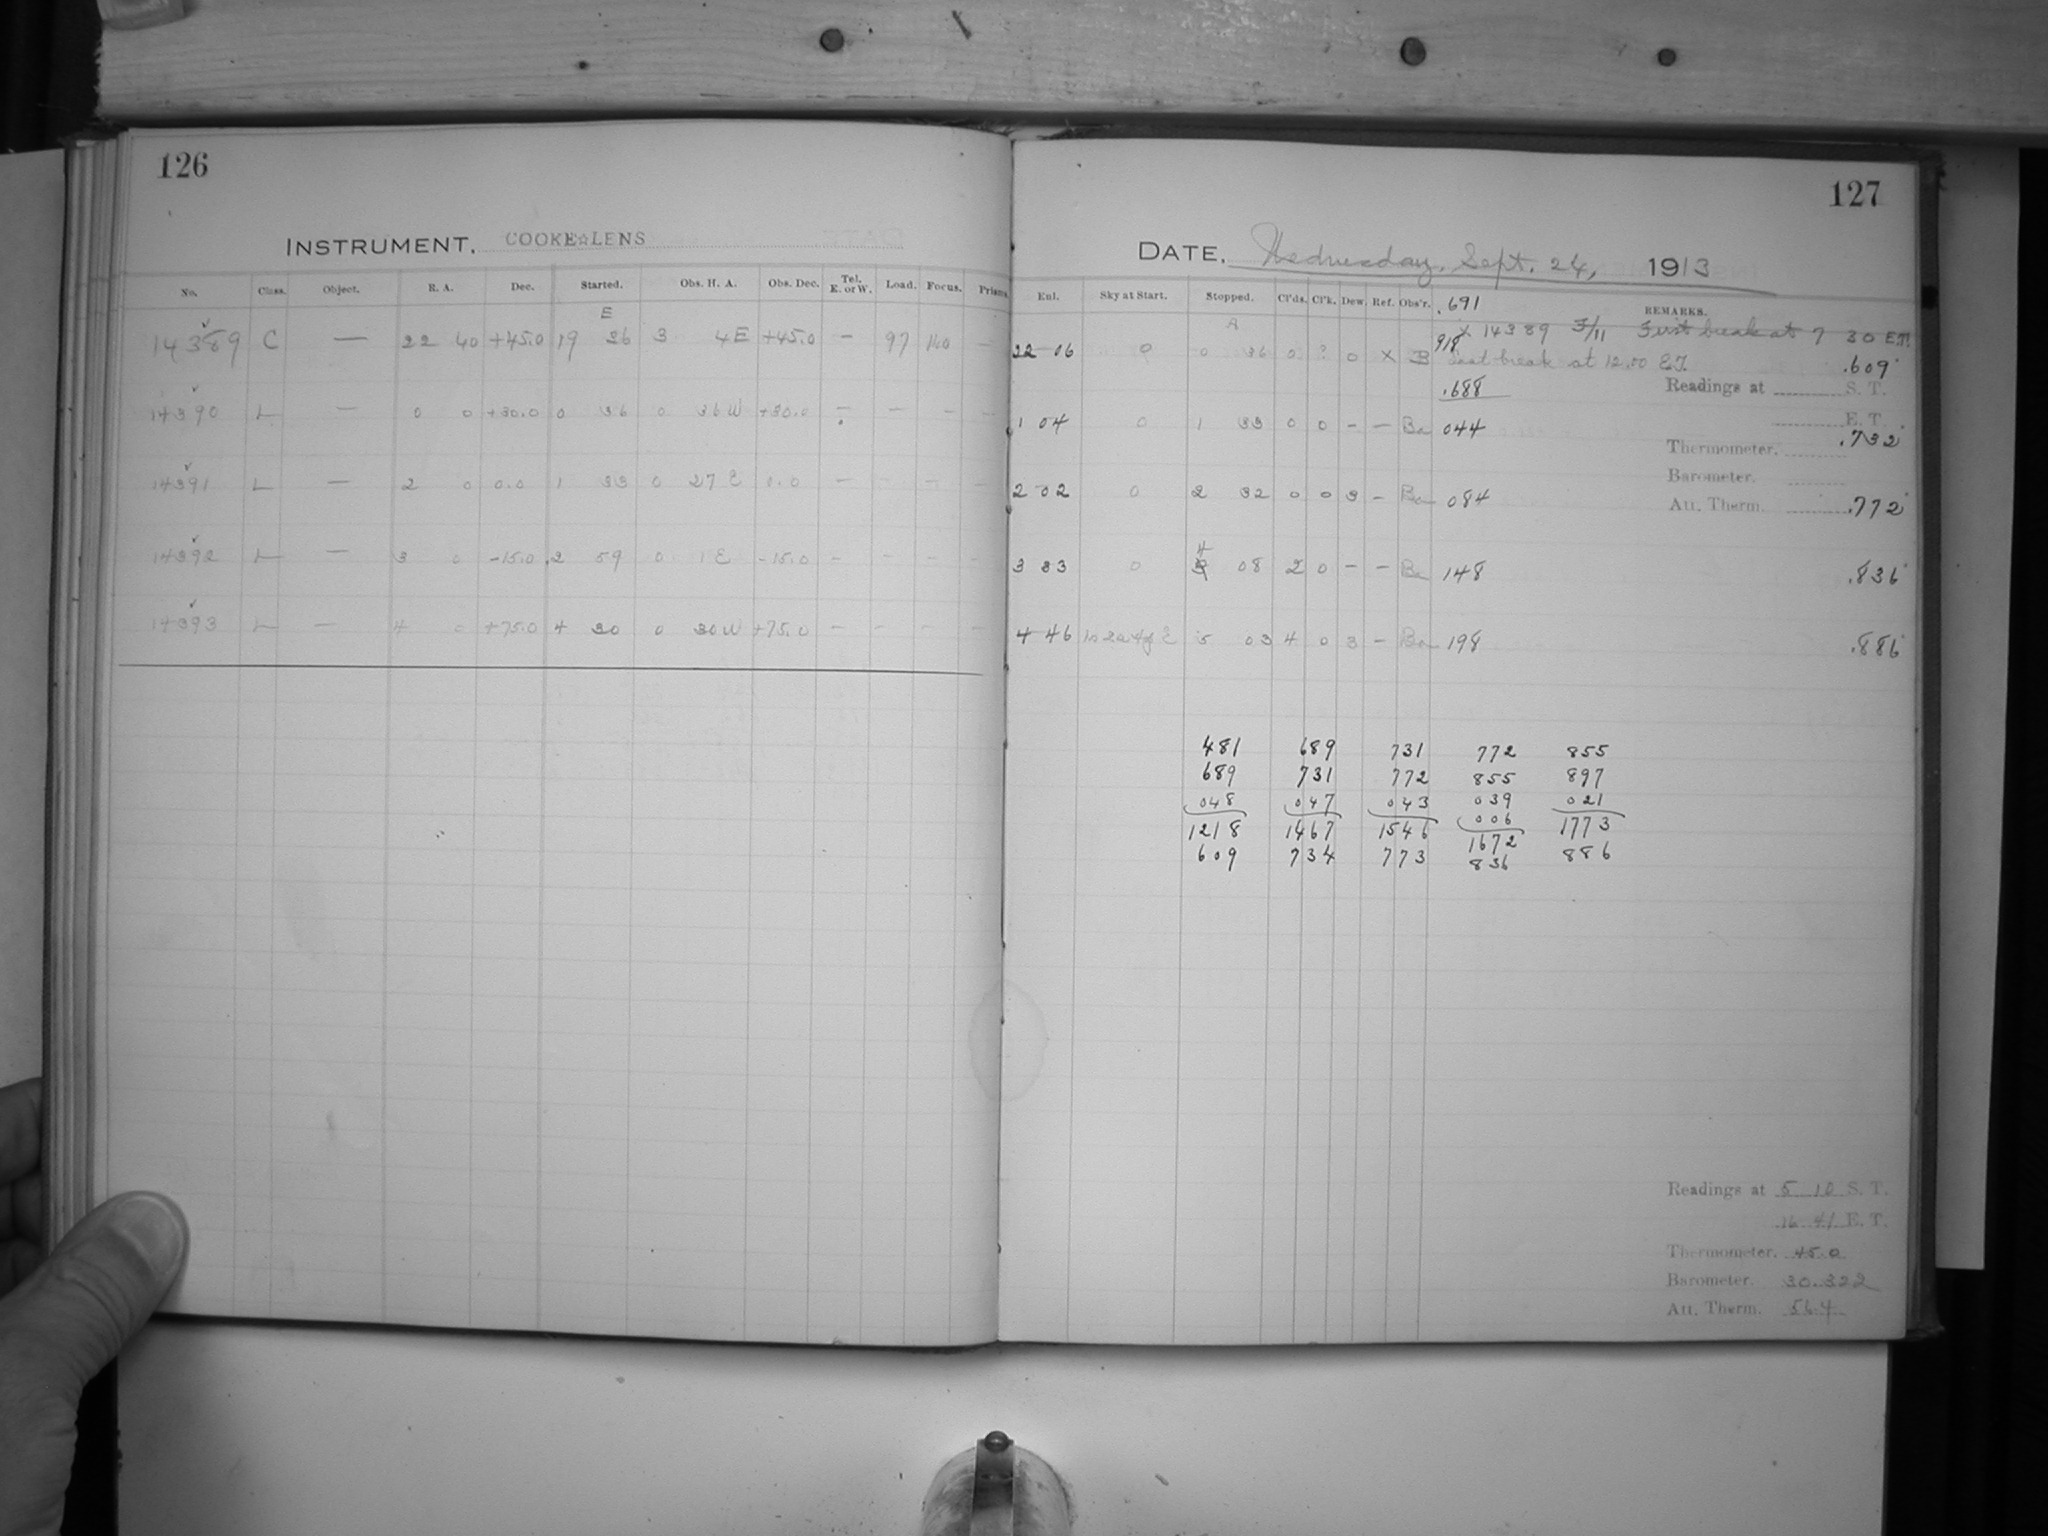 126
INSTRUMENT. COOKE☆LENS
No. Class. Object. R. A. Dec. Started. Obs. H. A. Obs. Dec. Tel. E. or W. Load. Focus. Prisms.
E
14389 C — 22 40 +45.0 19 26 3 4 E +45.0 — 97 160 —
14390 L — 0 0 +30.0 0 36 0 36 W +30.0 — — — —
14391 L — 2 0 0.0 1 33 0 27 E 0.0 — — — —
14392 L — 3 0 -15.0 2 59 0 1 E -15.0 — — — —
14393 L — 4 0 +75.0 4 30 0 30 W +75.0 — — — —
127
DATE. Wednesday, Sept. 24, 1913
Eul. Sky at Start. Stopped. Cl'ds. Cl'k. Dew. Ref. Obs'r. .691 REMARKS.
A
X 14389 F/11 First break at 7 30 E.T.
22 06 0 0 36 0 ? 0 X B 918 Last break at 12.00 E.T. .609
.688 Readings at S. T.
1 04 0 1 33 0 0 — — Ba 044 E. T.
Thermometer. .732
Barometer.
2 02 0 2 32 0 0 3 — Ba 084 Att. Therm. .772
3 33 0 4 08 2 0 — — Ba 148 .836
4 46 5 03 4 0 3 — Ba 198 .886
481 689 731 772 855
689 731 772 855 897
048 047 043 039 021
006
1218 1467 1546 1672 1773
609 734 773 836 886
Readings at 5 10 S. T.
16 41 E. T.
Thermometer. 45.0
Barometer. 30.322
Att. Therm. 56.4